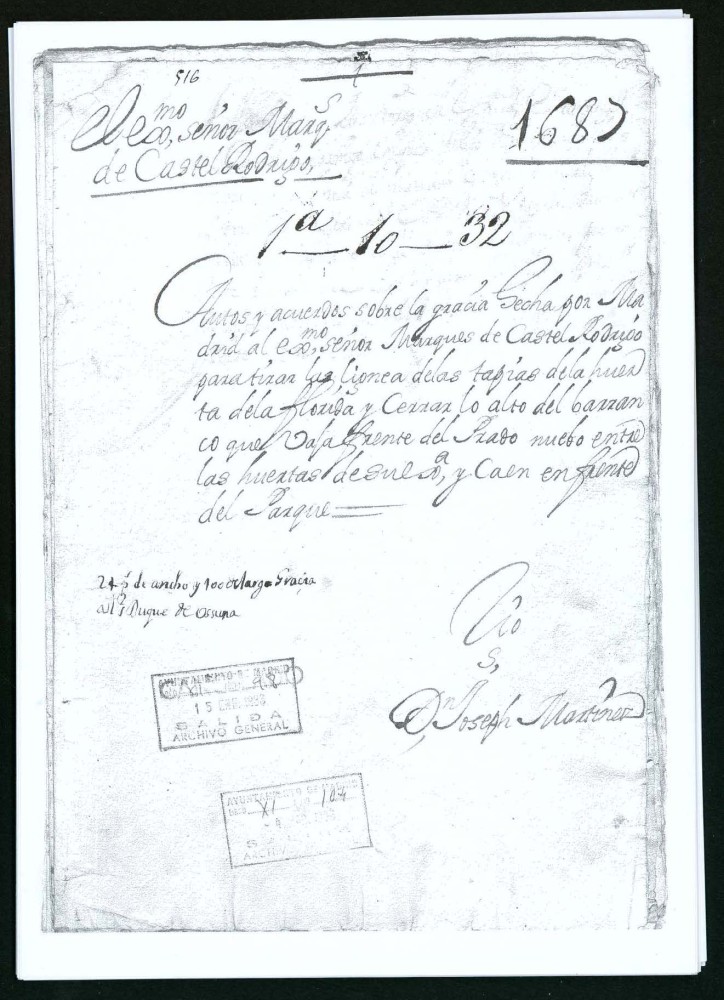 916
1
El exmo, señor Marqs
de Castel Rodrigo,
1687
1a_10_32
Autos y acuerdos sobre la gracia hecha por Ma
drid al exmo, señor Marques de Castel Rodrigo
para tirar la lignea delas tapias dela huer
ta dela florida y Cerrar lo alto del barran
co que Vaja frente del Prado nuebo entre
las huertas de su exa, y Caen enfrente
del Parque
de ancho y 100 de largo Gracia
al Duque de ossuna
sio
S,
Dn Joseph Martinez
AYUNTAMIENTO DE MADRID
15 ENE.
SALIDA
ARCHIVO GENERAL
AYUNTAMIENTO DE MADRID
XI 104
ARCHIVO